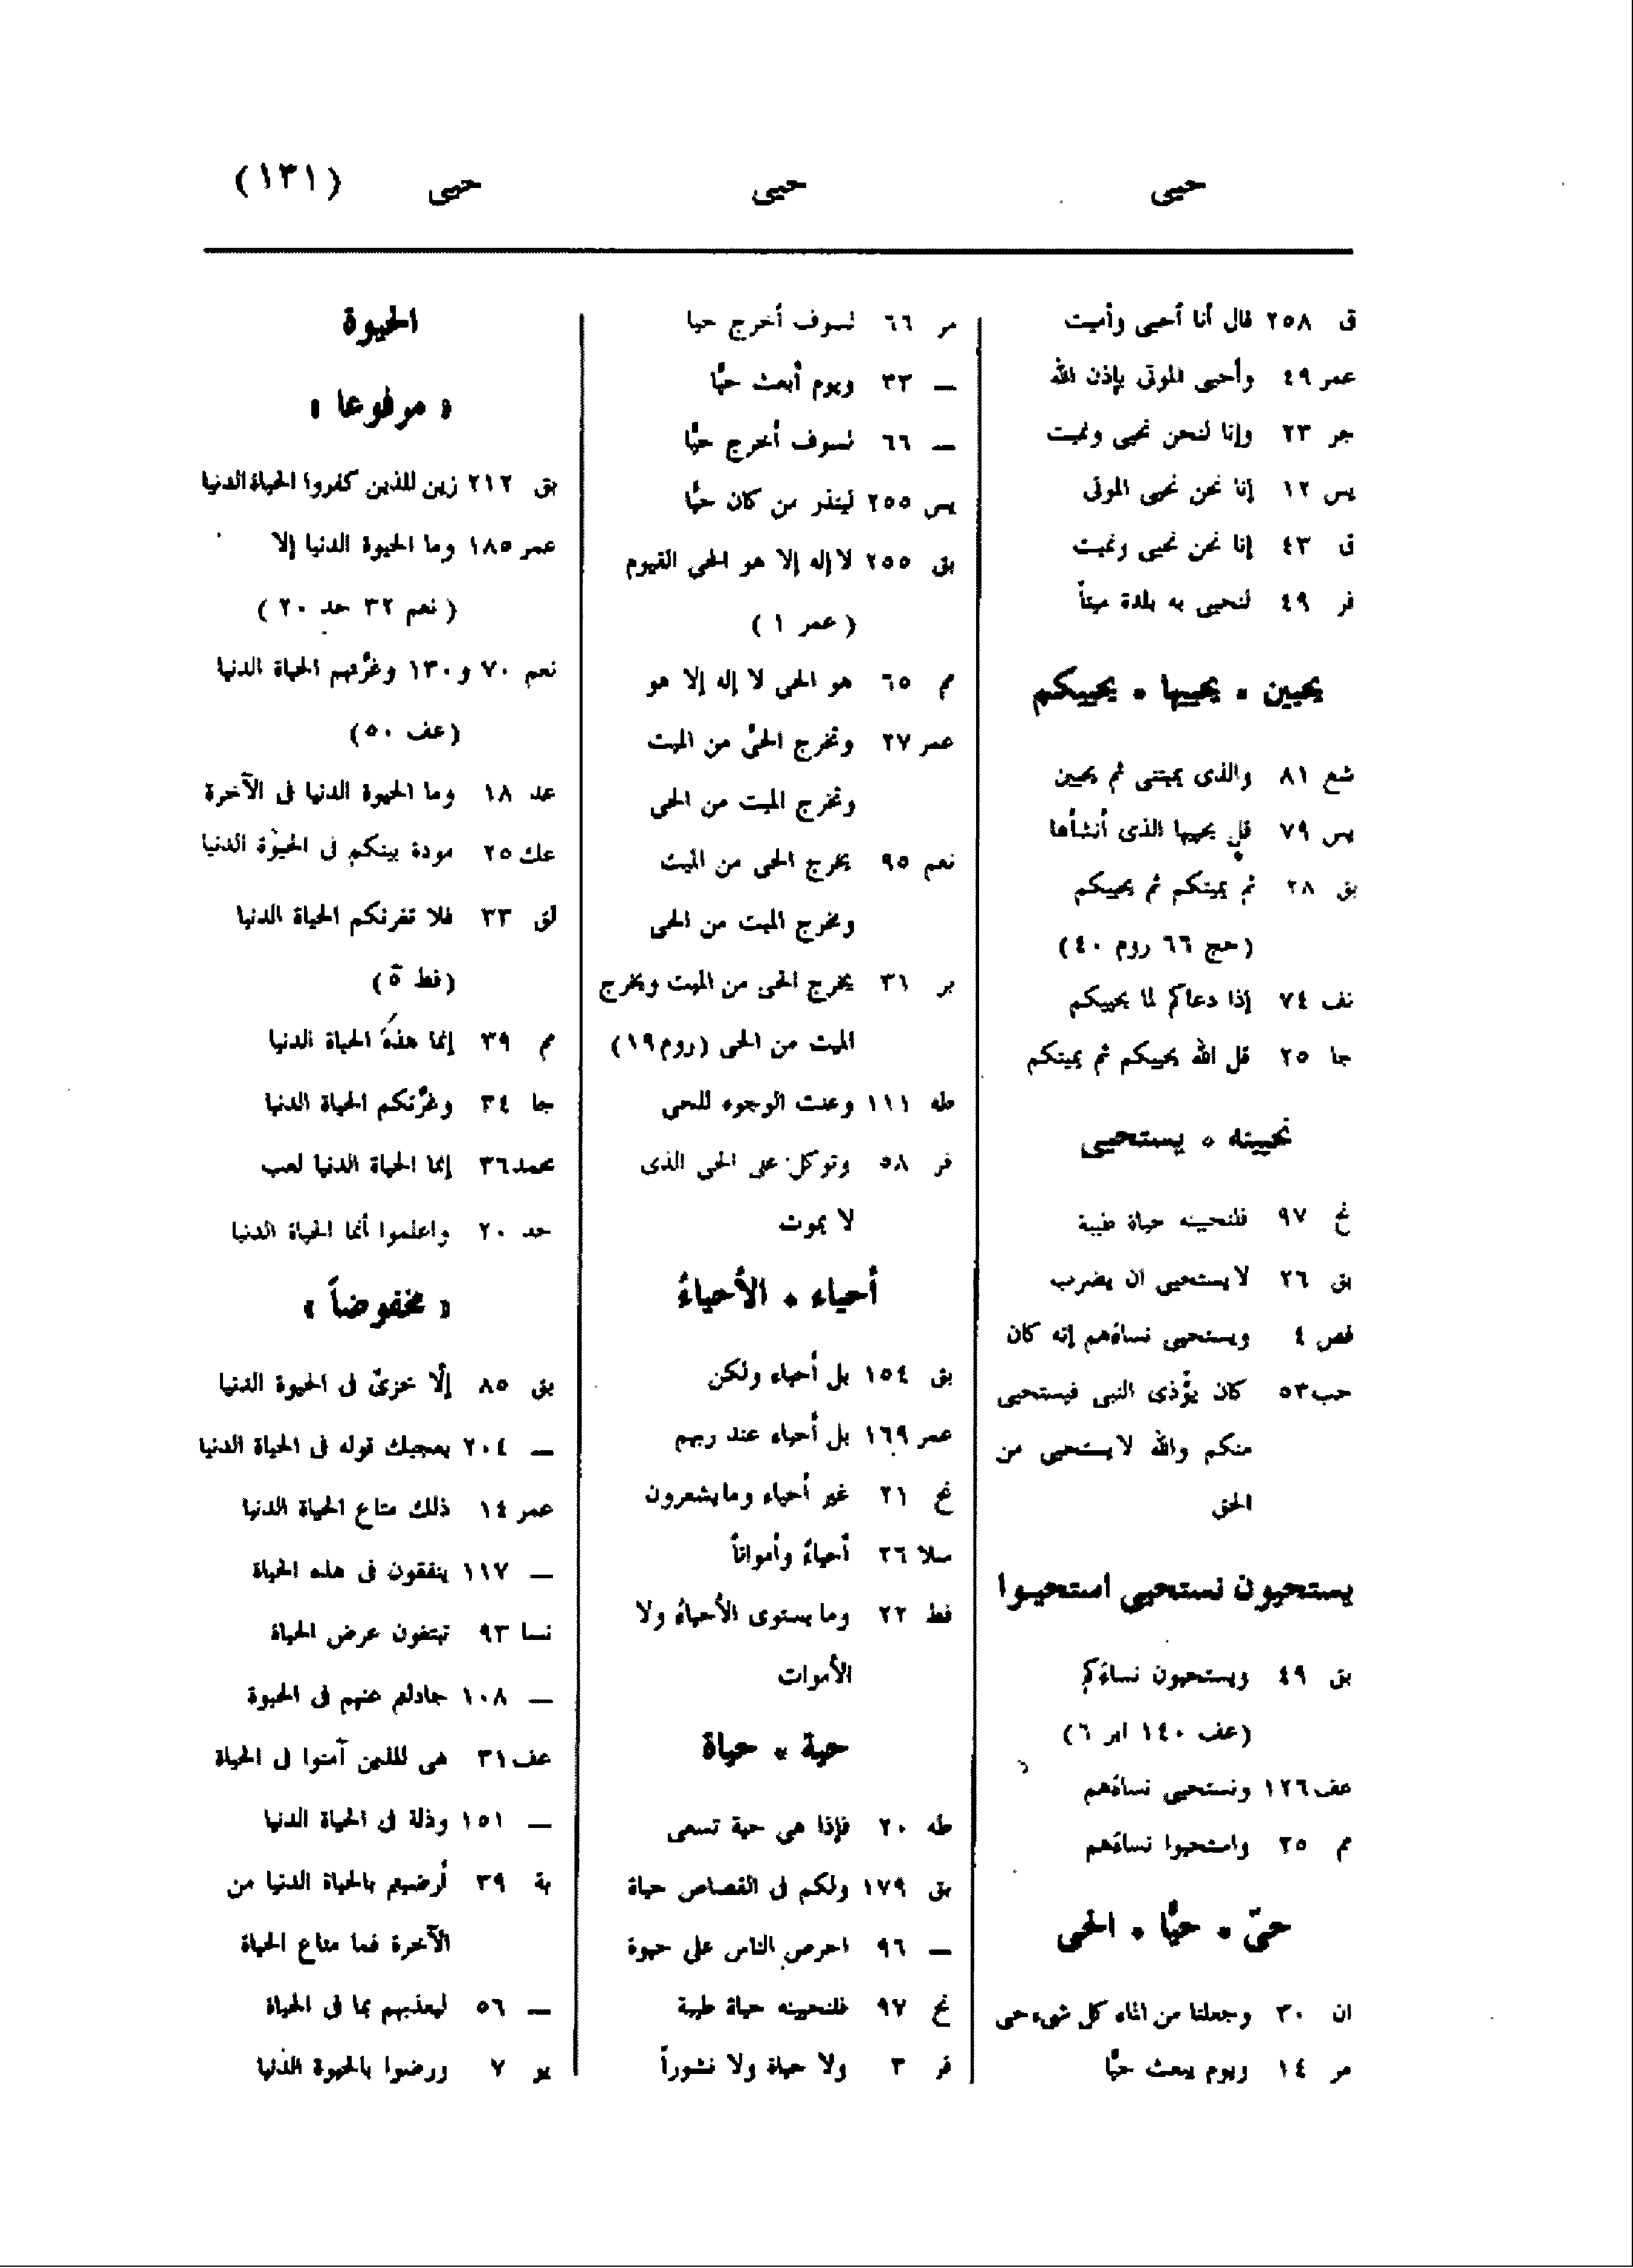 حيى حيى حيى (١٣١)
ق ٢٥٨ قال أنا أحيى وأميت
عمر ٤٩ وأحيى الموتى بإذن الله
جر ٢٣ وإنا لنحن نحيى ونميت
يس ١٢ إنا نحن نحيى الموتى
ق ٤٣ إنا نحن نحيى ونميت
فر ٤٩ لنحيى به بلدة ميتاً
يحيين * يحييها * يحييكم
شع ٨١ والذى يميتنى ثم يحيين
يس ٧٩ قل يحييها الذى أنشأها
بق ٢٨ ثم يميتكم ثم يحييكم
(حج ٦٦ روم ٤٠)
نف ٧٤ إذا دعاكم لما يحييكم
جا ٢٥ قل الله يحييكم ثم يميتكم
نحيينه * يستحيى
نح ٩٧ فلنحيينه حياة طيبة
بق ٢٦ لا يستحيى ان يضرب
قص ٤ ويستحيى نساءهم إنه كان
حب ٥٣ كان يؤذى النبى فيستحيى
منكم والله لا يستحيى من
الحق
يستحيون نستحيى استحيـوا
بق ٤٩ ويستحيون نساءكم
(عف ١٤٠ ابر ٦)
عف ١٢٦ ونستحيى نساءهم
مم ٢٥ واستحيوا نساءهم
حىّ * حيًّا * الحى
ان ٣٠ وجعلنا من الماء كل شىء حى
مر ١٤ ويوم يبعث حيًّا
مر ٦٦ لسوف أخرج حيا
— ٣٣ ويوم أبعث حيًّا
— ٦٦ لسوف أخرج حيًّا
يس ٢٥٥ لينذر من كان حيًّا
بق ٢٥٥ لا إله إلا هو الحى القيوم
(عمر ١)
مم ٦٥ هو الحى لا إله إلا هو
عمر ٢٧ وتخرج الحىّ من الميت
وتخرج الميت من الحى
نعم ٩٥ يخرج الحى من الميت
ومخرج الميت من الحى
بر ٣١ يخرج الحى من الميت ويخرج
الميت من الحى (روم ١٩)
طه ١١١ وعنت الوجوه للحى
فر ٥٨ وتوكل على الحى الذى
لا يموت
أحياء * الأحياءُ
بق ١٥٤ بل أحياء ولكن
عمر ١٦٩ بل أحياء عند ربهم
نح ٢١ غير أحياء وما يشعرون
سلا ٢٦ أحياءً وأمواتاً
فط ٢٢ وما يستوى الأحياءُ ولا
الأموات
حية * حياة
طه ٢٠ فإذا هى حية تسعى
بق ١٧٩ ولكم فى القصاص حياة
— ٩٦ احرص الناس على حيوة
نح ٩٧ فلنحيينه حياة طيبة
فر ٣ ولا حياة ولا نشوراً
الحيوة
« مرفوعا »
بق ٢١٢ زين للذين كفروا الحياة الدنيا
عمر ١٨٥ وما الحيوة الدنيا إلا
(نعم ٣٢ حد ٢٠)
نعم ٧٠ و ١٣٠ وغرَّتهم الحياة الدنيا
(عف ٥٠)
عد ١٨ وما الحيوة الدنيا فى الآخرة
عك ٢٥ مودة بينكم فى الحيوة الدنيا
لق ٣٣ فلا تغرنكم الحياة الدنيا
(فط ٥)
مم ٣٩ إنما هذه الحياة الدنيا
جا ٣٤ وغرَّتكم الحياة الدنيا
محمد ٣٦ إنما الحياة الدنيا لعب
حد ٢٠ واعلموا أنما الحياة الدنيا
« مخفوضاً »
بق ٨٥ إلّا خزىٌ فى الحيوة الدنيا
— ٢٠٤ يعجبك قوله فى الحياة الدنيا
عمر ١٤ ذلك متاع الحياة الدنيا
— ١١٧ ينفقون فى هذه الحياة
نسا ٩٣ تبتغون عرض الحياة
— ١٠٨ جادلتم عنهم فى الحيوة
عف ٣١ هى للذين آمنوا فى الحياة
— ١٥١ وذلة فى الحياة الدنيا
بة ٣٩ أرضيتم بالحياة الدنيا من
الآخرة فما متاع الحياة
— ٥٦ ليعذبهم بما فى الحياة
يو ٧ ورضوا بالحيوة الدنيا